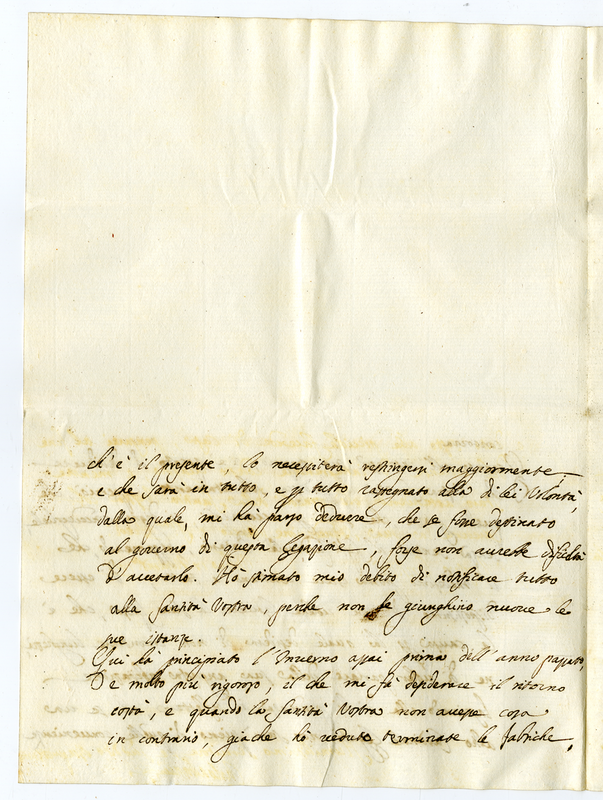 ch'è il presente, lo necessiterà restringersi maggiormente
e che sarà in tutto, e p tutto rassegnato alla di lei Volontà,
dalla quale, mi hà parso dedurre, che se fosse destinato
al governo di questa Legazione, forse non aurebbe dificoltà
d'accetarlo. Hò stimato mio debito di notificare tutto
alla Santità Vostra, perche non le giunghino nuove le
sue istanze.
Qui hà principiato l'Inverno assai prima dell'anno passato,
e molto più rigoroso, il che mi fà desiderare il ritorno
costà, e quando la Santità Vostra non avesse cosa
in contrario, giache hò vedute terminate le fabriche,